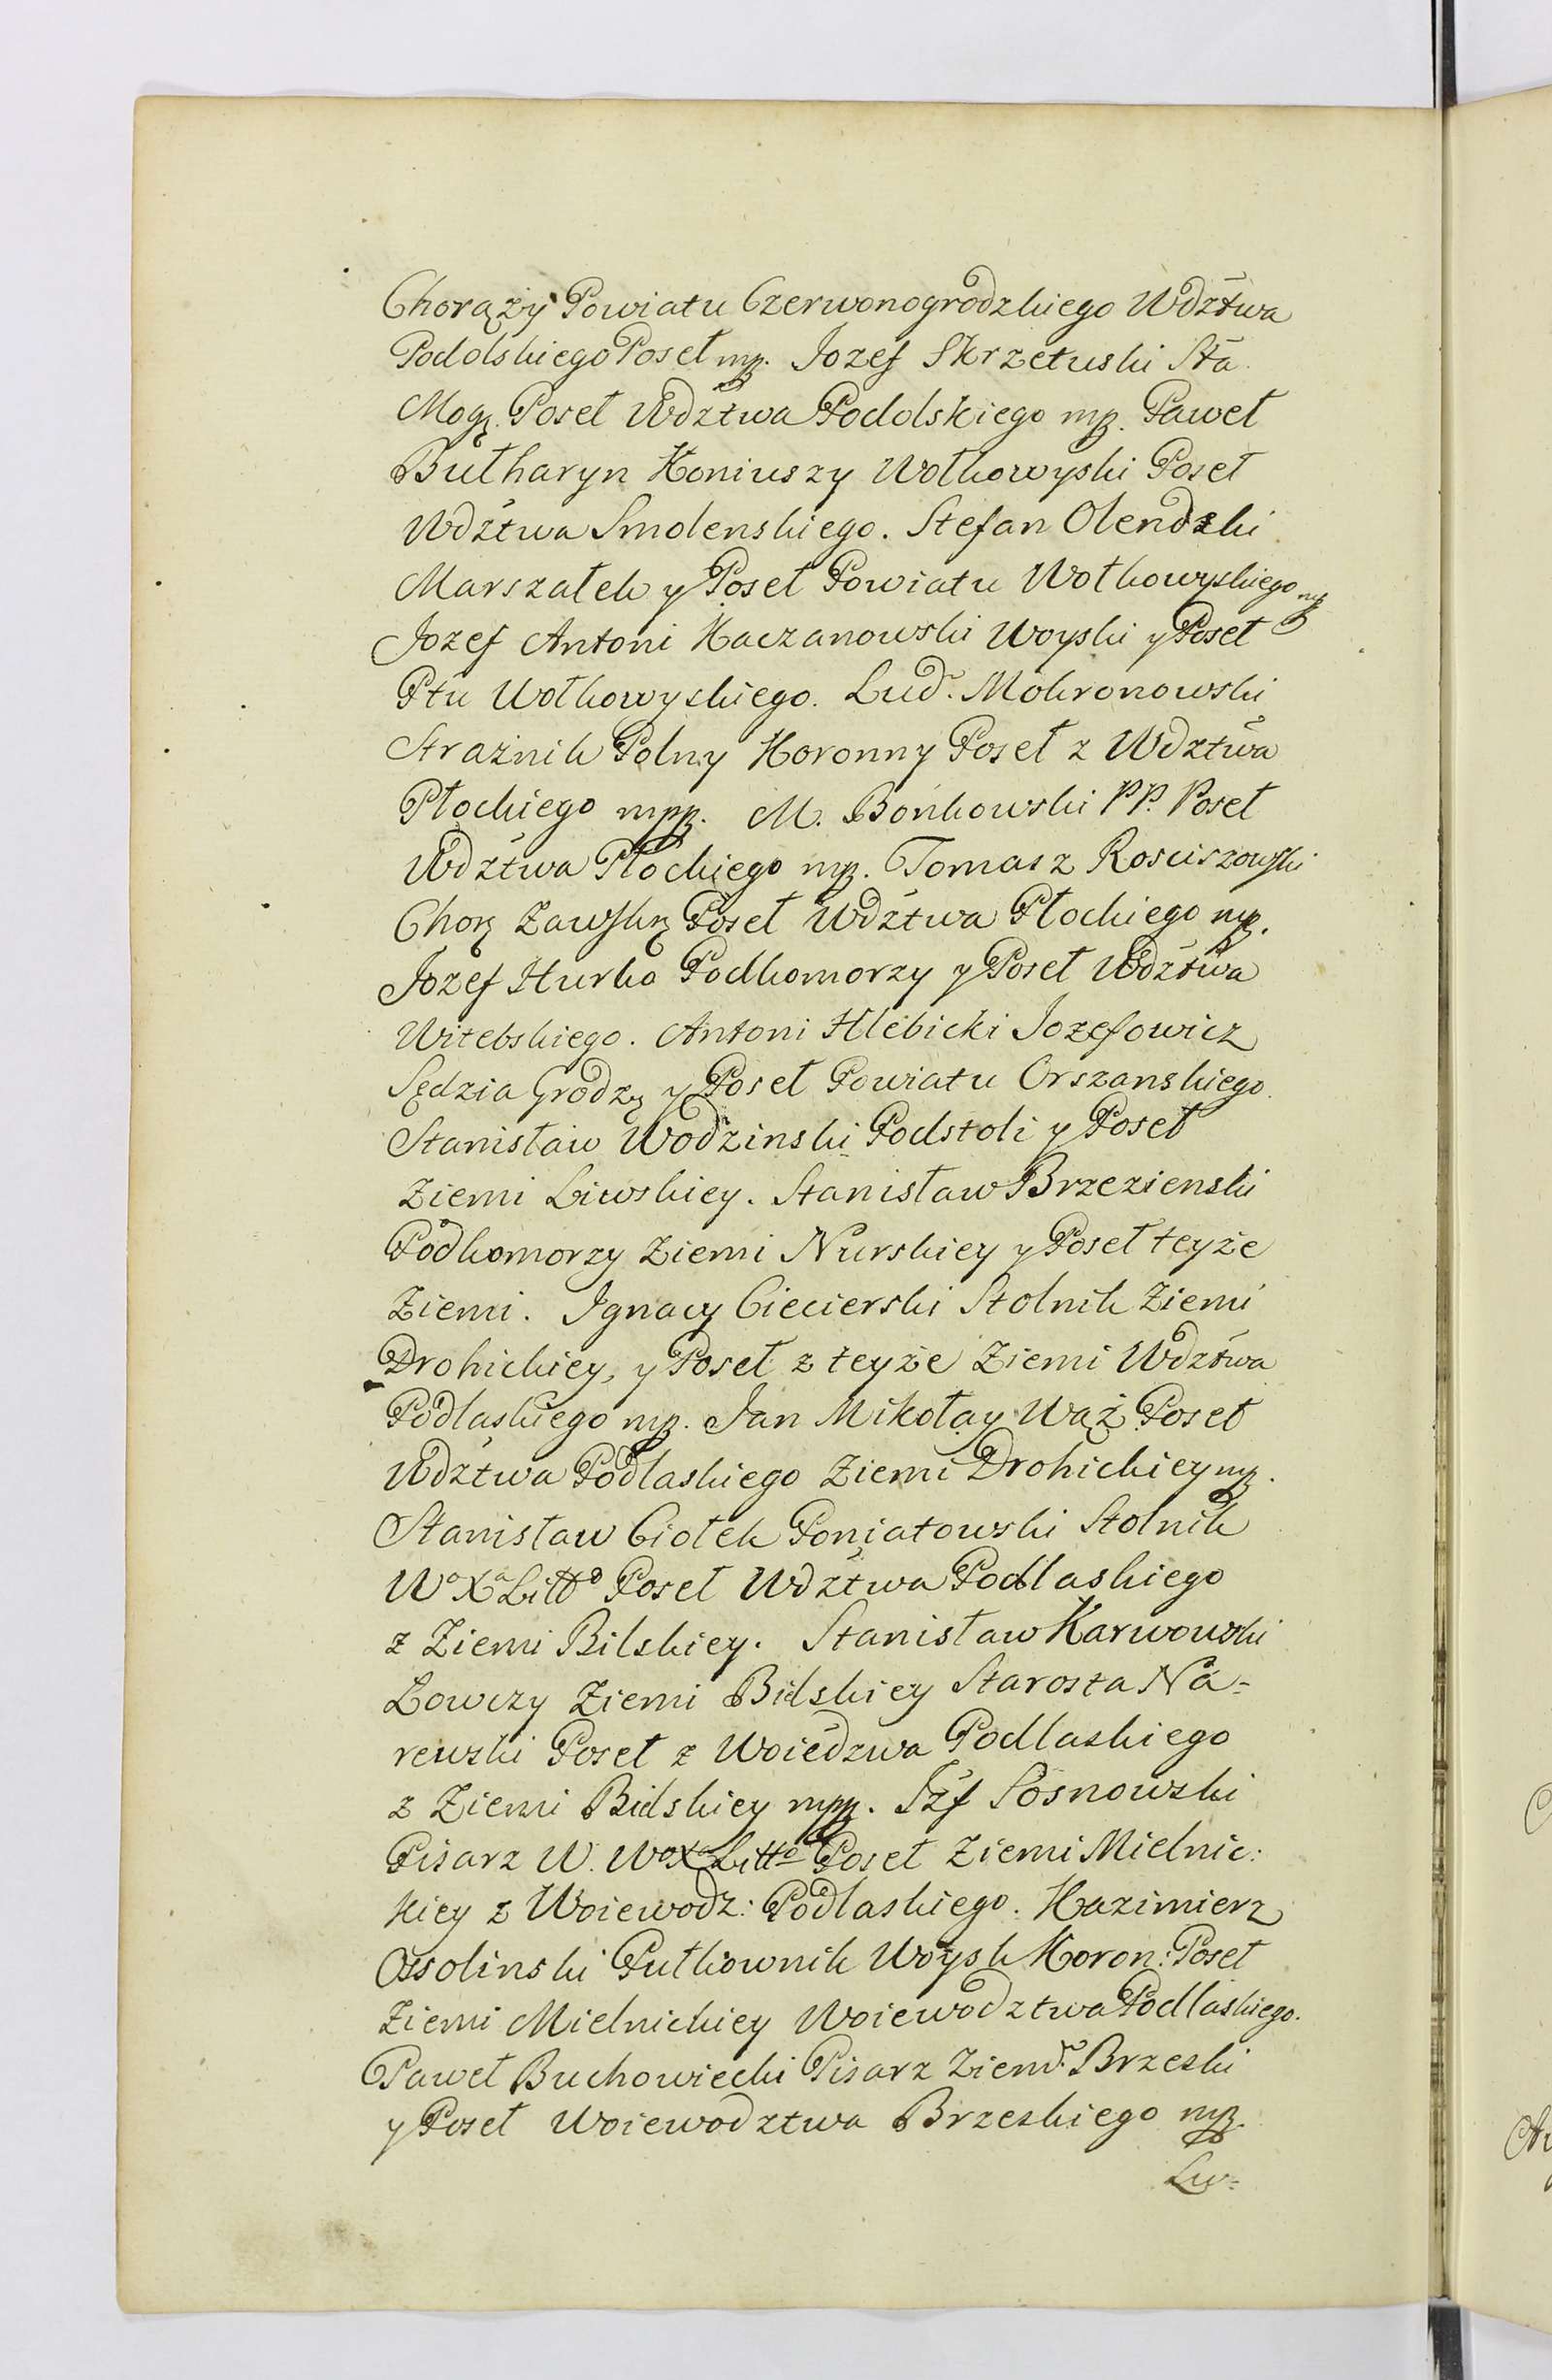 Chorąży Powiatu Czerwonogrodzkiego Wdztwa
Podolskiego Poseł mp. Jozef Skrzetuski Sta
Mog. Poseł Wdztwa Podolskiego mp. Paweł
Bułharyn Koniuszy Wołkowyski Poseł
Wdztwa Smolenskiego. Stefan Olendzki
Marszałek y Poseł Powiatu Wołkowyskiego mp
Jozef Antoni Kaczanowski Woyski y Poseł
Ptu Wołkowyskiego. Lud. Mokronowski
Strażnik Polny Koronny Poseł z Wdztwa
Płockiego mpp. M. Bońkowski PP. Poseł
Wdztwa Płockiego mp. Tomasz Rosciszowski
Chor Zawskrz Poseł Wdztwa Płockiego mp.
Jozef Hurko Podkomorzy y Poseł Wdztwa
Witebskiego. Antoni Hlebicki Jozefowicz
Sędzia Grodz y Poseł Powiatu Orszanskiego
Stanisław Wodzinski Podstoli y Poseł
Ziemi Liwskiey. Stanisław Brzezienski
Podkomorzy Ziemi Nurskiey y Poseł teyże
Ziemi. Ignacy Ciecierski Stolnik Ziemi
Drohickiey, y Poseł z teyże Ziemi Wdztwa
Podlaskiego mp. Jan Mikołay Wąż Poseł
Wdztwa Podlaskiego Ziemi Drohickiey mp.
Stanisław Ciołek Poniatowski Stolnik
Wo Xa Litto Poseł Wdztwa Podlaskiego
z Ziemi Bilskiey. Stanisław Karwowski
Łowczy Ziemi Bielskiey Starosta Na=
rewski Poseł z Woiedzwa Podlaskiego
z Ziemi Bielskiey mpp. Jzf Sosnowski
Pisarz W. Wo Xa Litto Poseł Ziemi Mielnic:
kiey z Woiewodz: Podlaskiego. Kazimierz
Ossolinski Pułkownik Woysk Koron: Poseł
Ziemi Mielnickiey Woiewodztwa Podlaskiego.
Paweł Buchowiecki Pisarz Ziem. Brzeski
y Poseł Woiewodztwa Brzeskiego mp.
Lu=